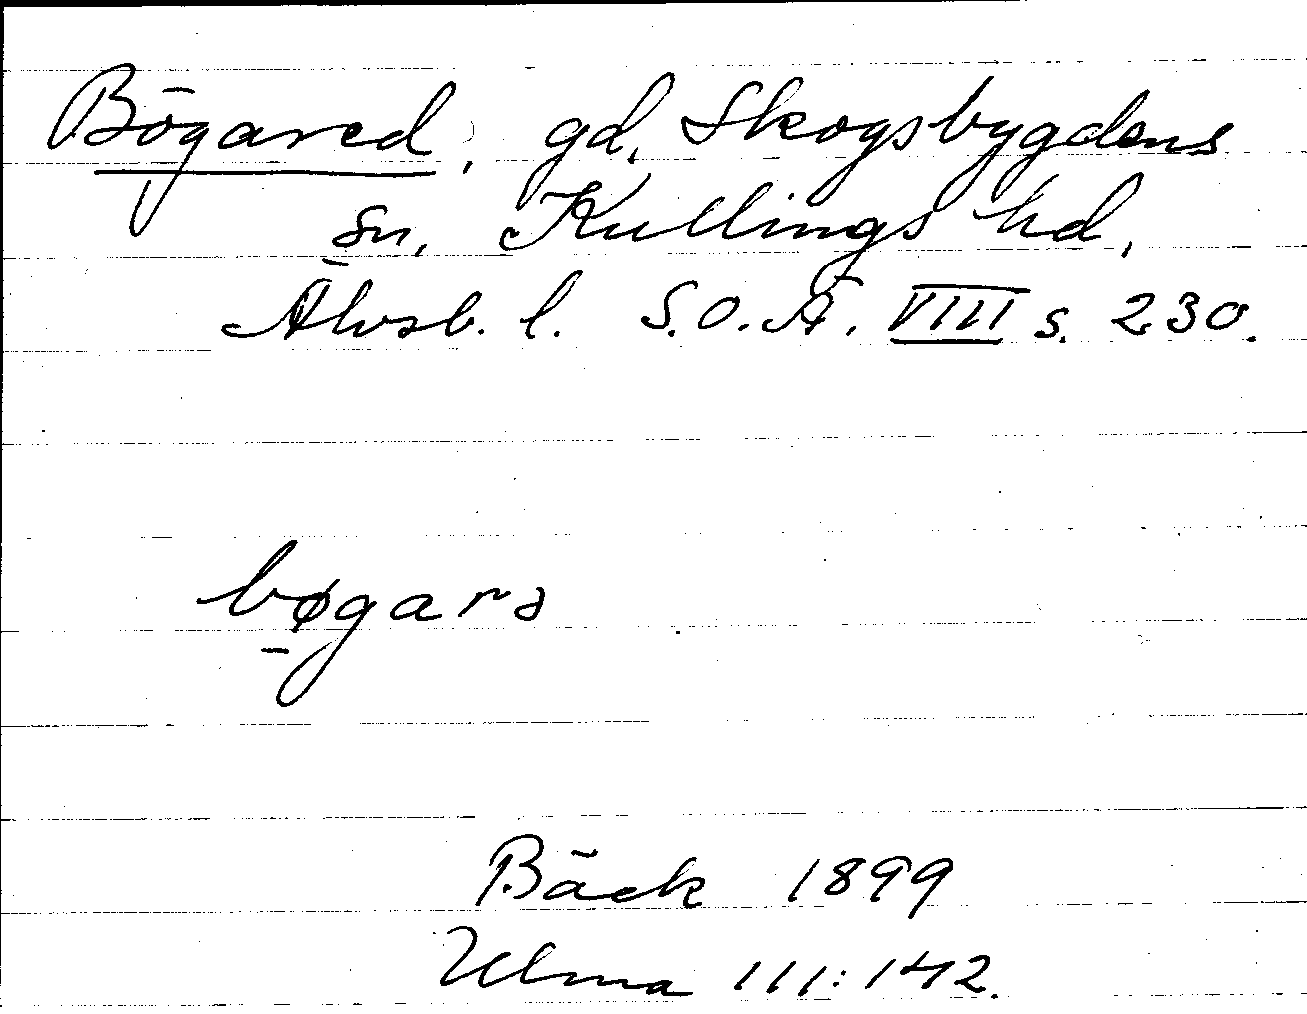 Bögared, gd, Skogsbygdens
sn, Kullings hd,
Älvsb. l. S.O.Ä. VIII s. 230.
bø̱garə
Bäck 1899
Ulma 111:142.